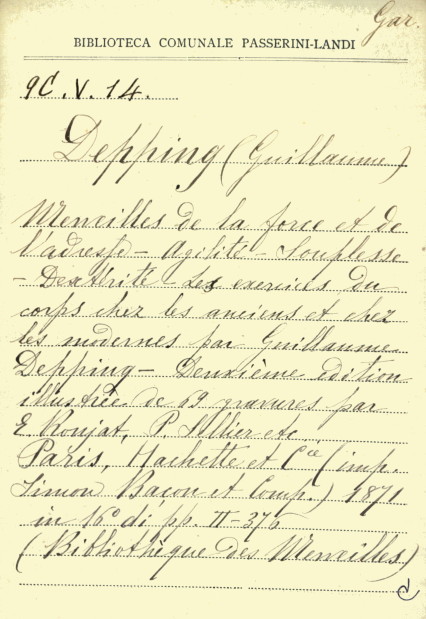 Gar.
BIBLIOTECA COMUNALE PASSERINI-LANDI
9C.V.14.
Depping (Guillaume)
Merveilles de la force et de
l'adresse - Agilité - Souplesse
- Dextérité - Les exercices du
corps chez les anciens et chez
les modernes par Guillaume
Depping - Deuxième édition
illustrée de 69 gravures par
E Ronjat, P Sellier etc
Paris, Hachette et Cie (imp.
Simon Bacon et Comp.) 1871
in 16° di pp. II-376
(Bibliothèque des Merveilles)